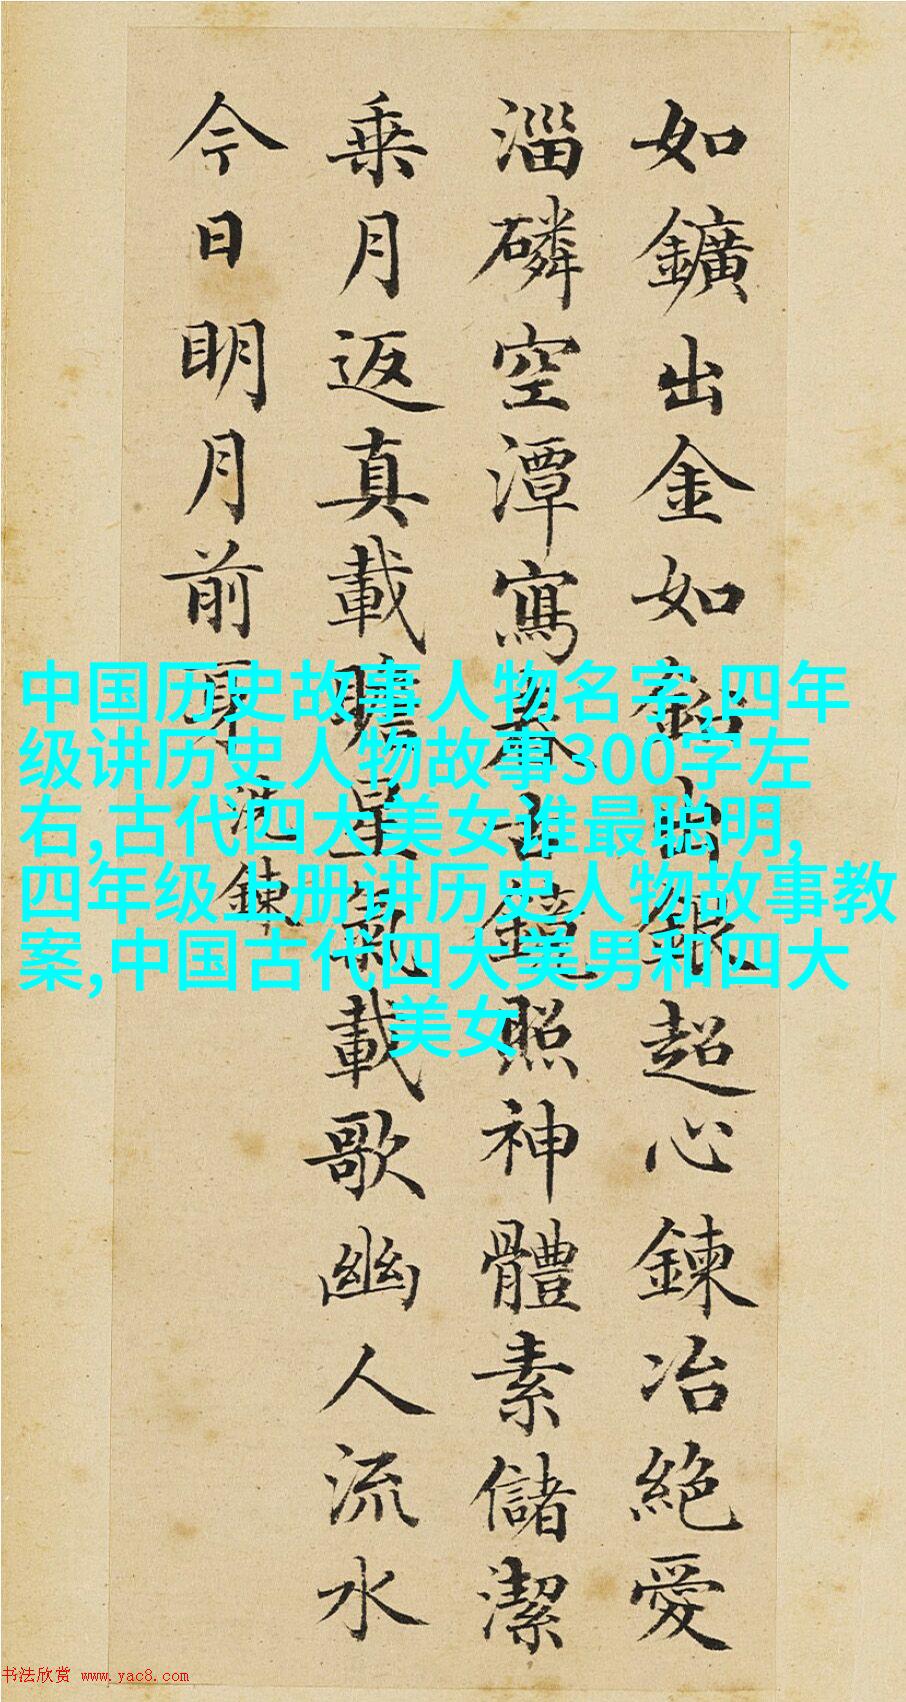 如鑛出金如鉛出銀超心鍊冶絕愛
淄磷空潭寫春古鏡照神體素儲潔
乗月返真載瞻星氣載歌幽人流水
今日明月前身
洗鍊
中国历史故事人物名字,四年
级讲历史人物故事300字左
右,古代四大美女谁最聪明,
四年级上册讲历史人物故事教
案,中国古代四大美男和四大
美女
书法欣赏 www.yac8.com